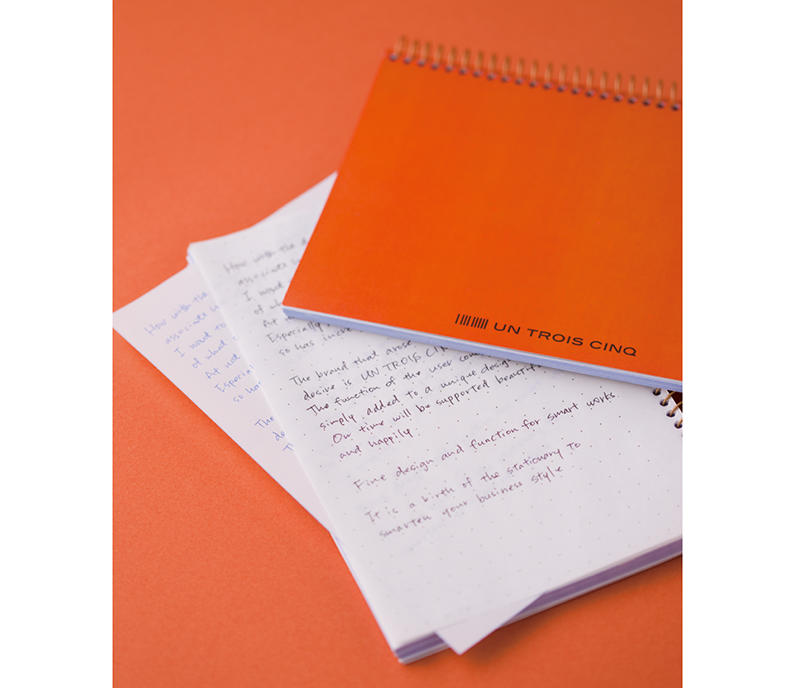 UN TROIS CINQ
How with the d
associate
I want
of wh
At
Especially
so has incre
The brand that arose
desire is UN TROIS CIN
The function of the user com
simply added to a unique design
On time will be supported beautif
and happily.
Fine design and function for smart works.
It is a birth of the stationary to
smarten your business style
How with the
associate
I want to
of what
At not
Especia
so ha
The
de
T